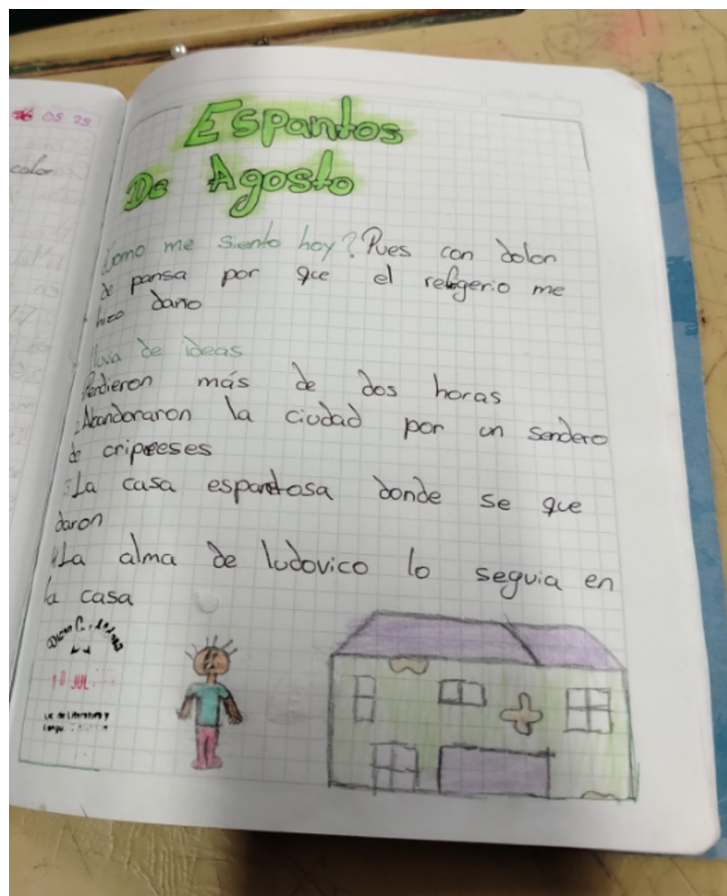 06 08 25
color
Espantos
De Agosto
¿Como me siento hoy? Pues con dolor
de pansa por que el refigerio me
hizo daño
lluvia de ideas
Perdieron más de dos horas
Abandonaron la ciudad por un sendero
de cripeeses
3 La casa espantosa donde se que
daron
4 La alma de ludovico lo seguia en
la casa
10 JUL
Lic. en Literatura y